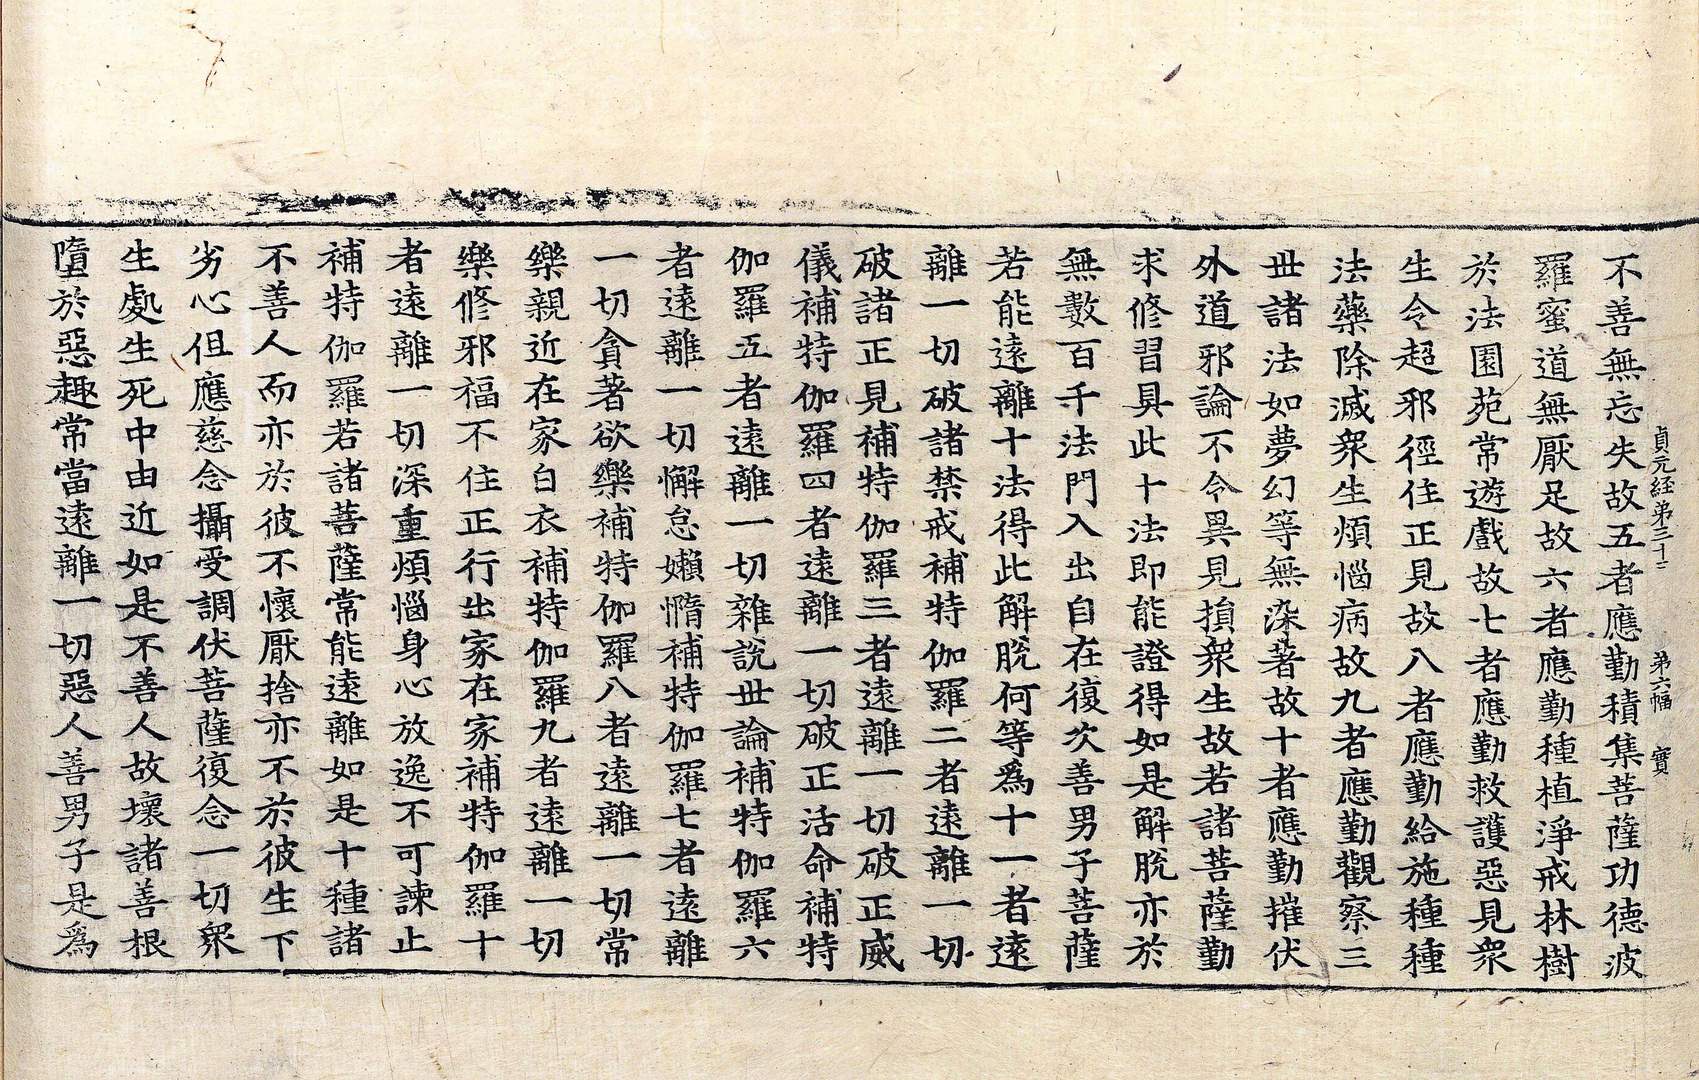 貞元経第三十二 第六幅 實
不善無忘失故五者應勤積集菩薩功德波
羅蜜道無厭足故六者應勤種植淨戒林樹
於法園苑常遊戲故七者應勤救護惡見衆
生令超邪徑住正見故八者應勤給施種種
法藥除滅衆生煩惱病故九者應勤觀察三
世諸法如夢幻等無染著故十者應勤摧伏
外道邪論不令異見損衆生故若諸菩薩勤
求修習具此十法即能證得如是解脫亦於
無數百千法門入出自在復次善男子菩薩
若能遠離十法得此解脫何等爲十一者遠
離一切破諸禁戒補特伽羅二者遠離一切
破諸正見補特伽羅三者遠離一切破正威
儀補特伽羅四者遠離一切破正活命補特
伽羅五者遠離一切雜說世論補特伽羅六
者遠離一切懈怠嬾惰補特伽羅七者遠離
一切貪著欲樂補特伽羅八者遠離一切常
樂親近在家白衣補特伽羅九者遠離一切
樂修邪福不住正行出家在家補特伽羅十
者遠離一切深重煩惱身心放逸不可諫止
補特伽羅若諸菩薩常能遠離如是十種諸
不善人而亦於彼不懷厭捨亦不於彼生下
劣心但應慈念攝受調伏菩薩復念一切衆
生處生死中由近如是不善人故壞諸善根
墮於惡趣常當遠離一切惡人善男子是爲